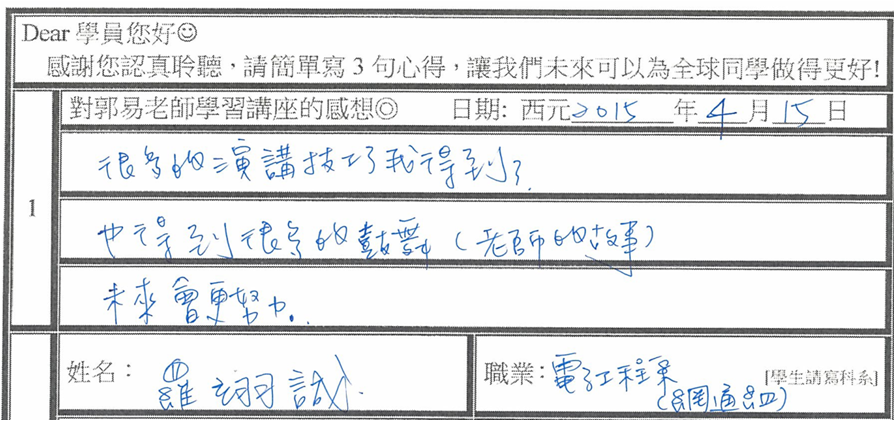 Dear 學員您好☺
感謝您認真聆聽，請簡單寫 3 句心得，讓我們未來可以為全球同學做得更好!
對郭易老師學習講座的感想◎ 日期: 西元2015年4月15日
很多的演講技巧我得到了
1
也得到很多的鼓舞（老師的故事）
未來會更努力.
姓名： 羅翊誠
職業：電訊工程系 [學生請寫科系]
(網通組)